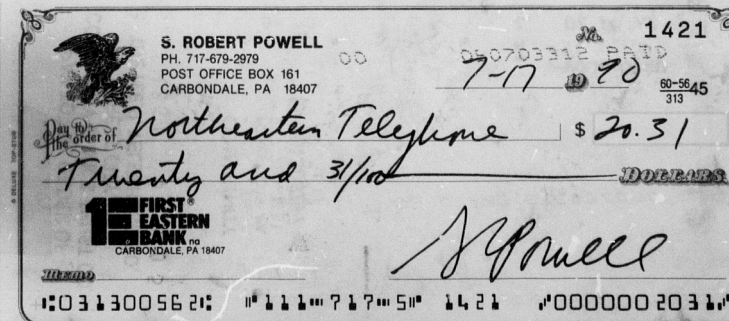 S. ROBERT POWELL
PH. 717-679-2979
POST OFFICE BOX 161
CARBONDALE, PA 18407
No. 1421
00 060703312 PAID
7-17 19 90
60-56 45
313
Pay to the order of Northeastern Telephone $ 20.31
Twenty and 31/100 DOLLARS
1E FIRST EASTERN BANK na
CARBONDALE, PA 18407
S R Powell
MEMO
⑆031300562⑆ ⑈111⑉717⑉5⑈ 1421 ⑇0000002031⑇